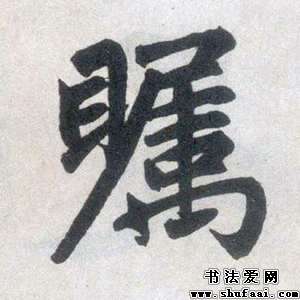 瞩
书法爱网
www.shufaai.com